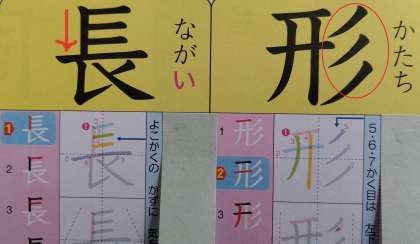 長
ながい
形
かたち
1 長
2
3
よこかくの かずに 気
1 形
2 形
3
5・6・7かく目は 左下